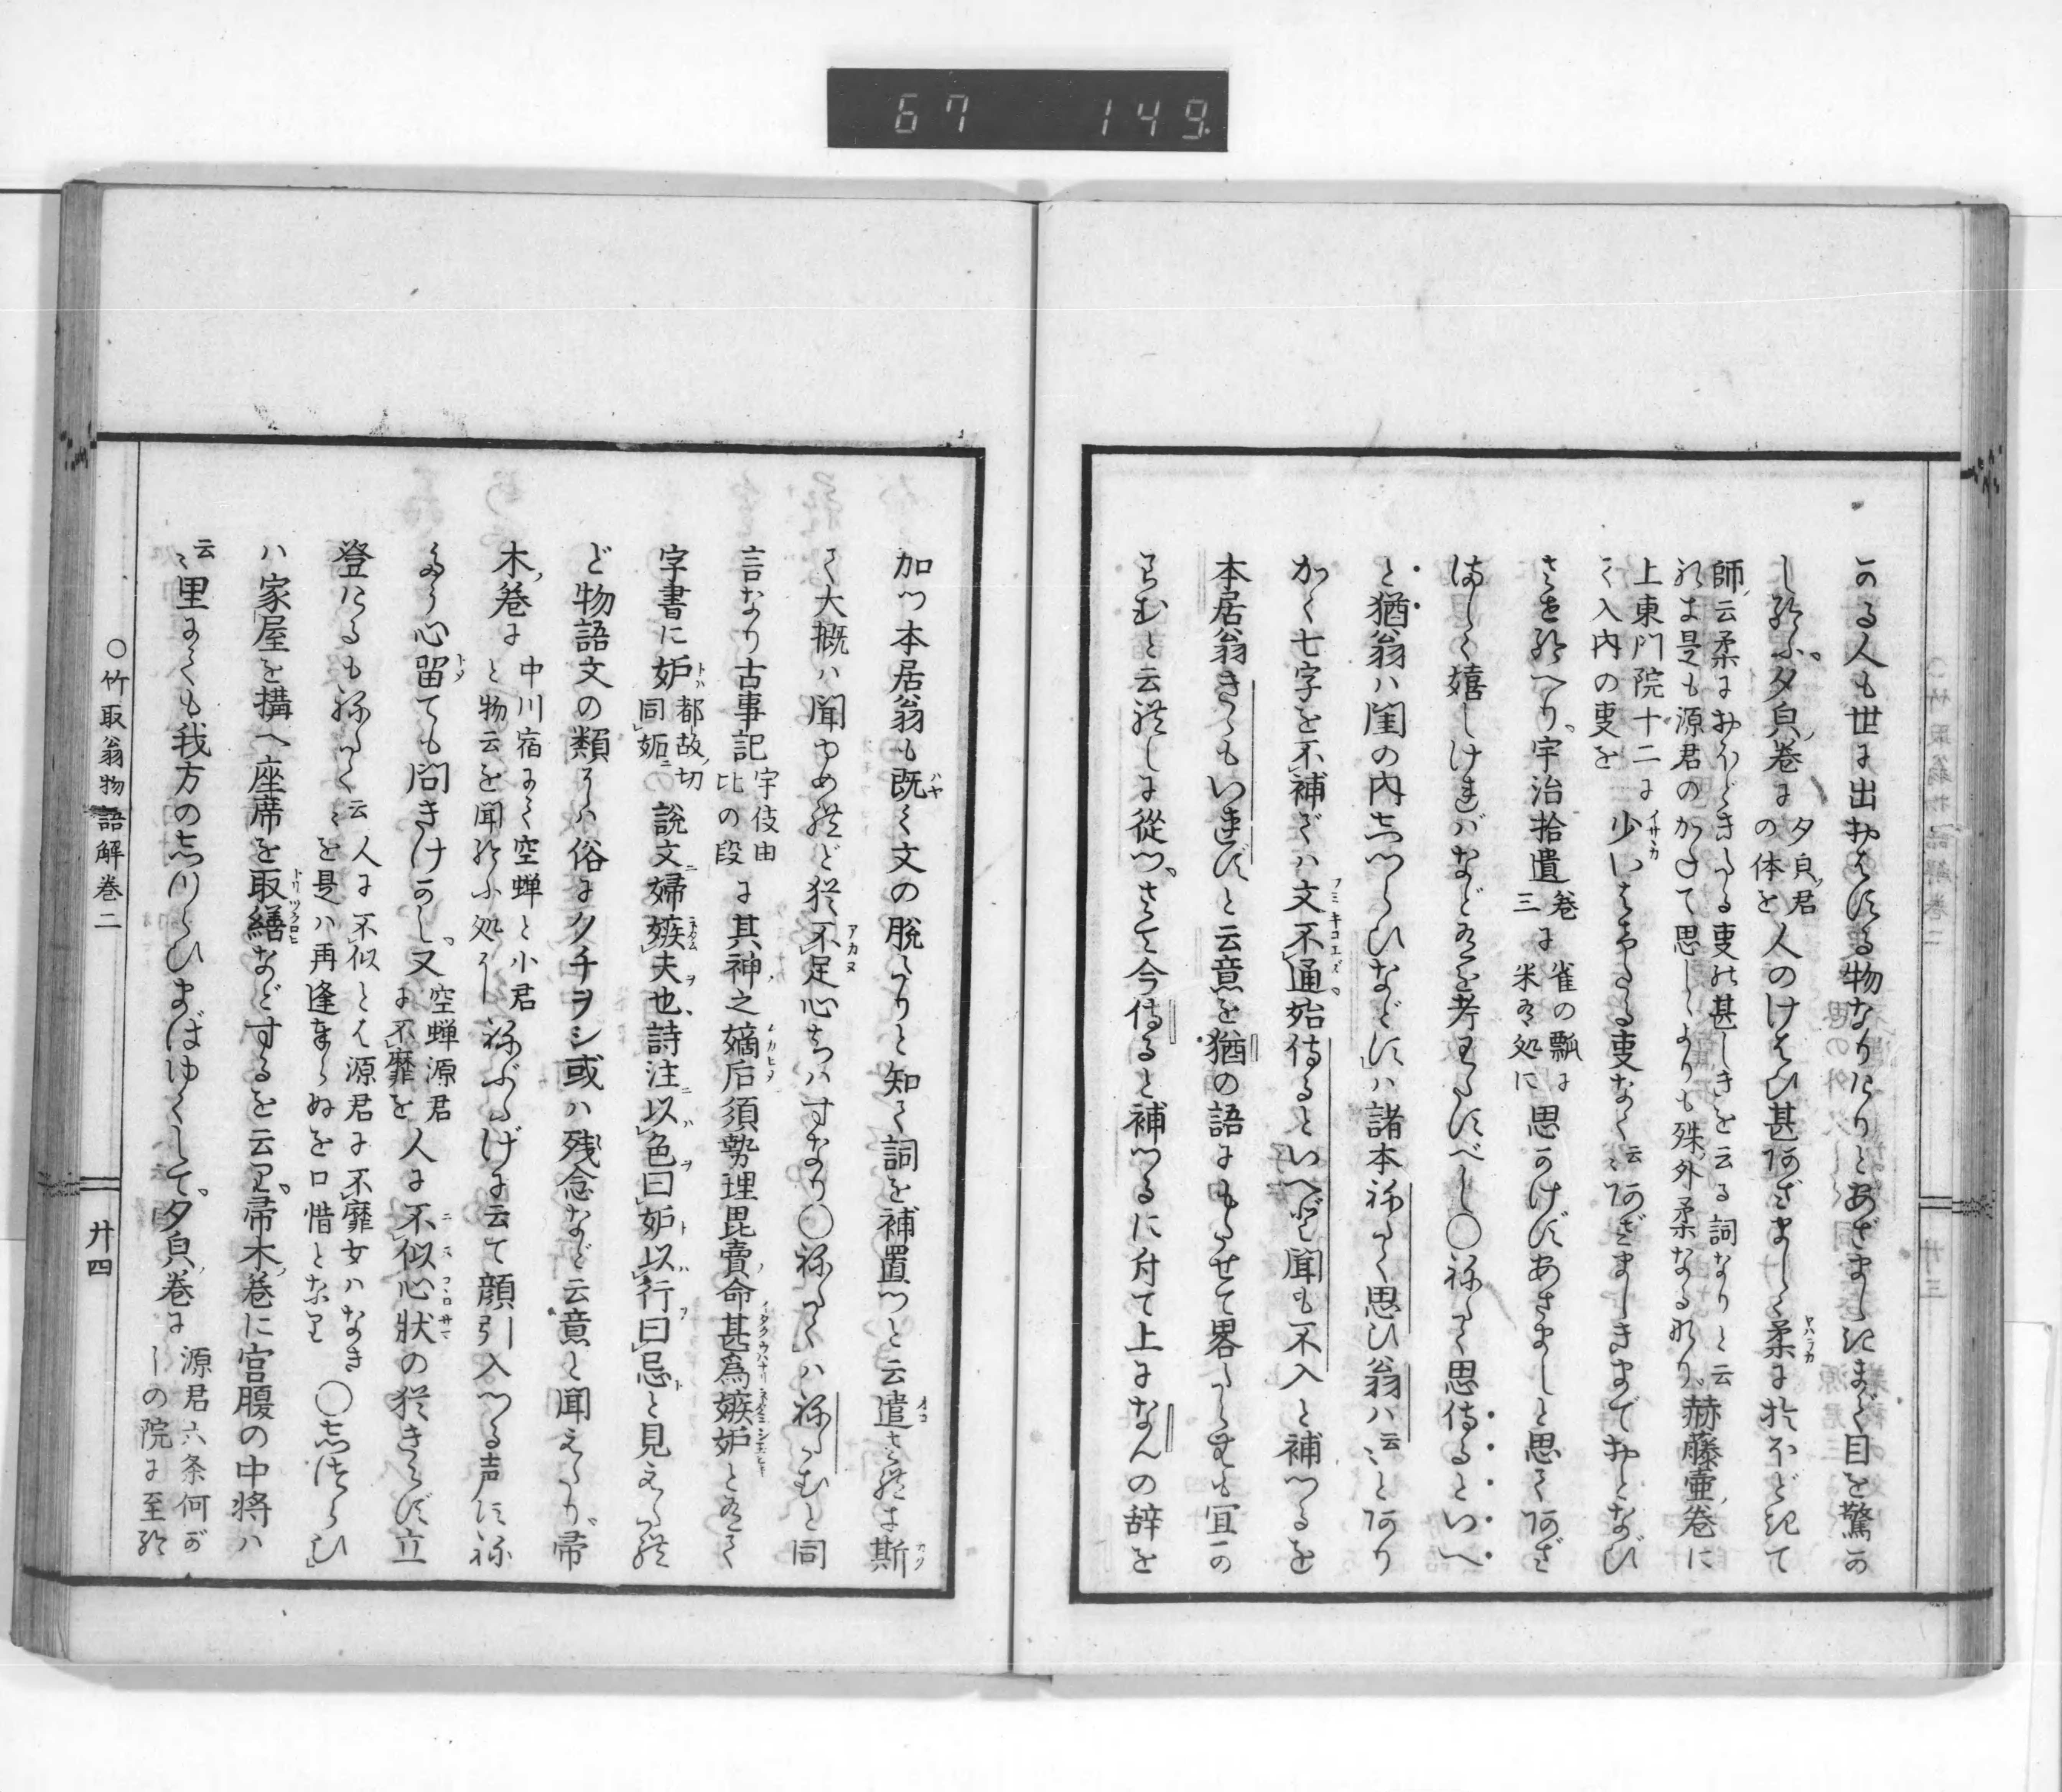 67 149
かる人も世に出おはする物なりけりとあざましきまで目を驚か
し給ふ夕㒵巻に
夕㒵君
の体を
人のけはひ甚あざましく柔におほどきて
師云柔におほどきたる叓の甚しきを云る詞なりと云
れは是も源君のかたて思ししよりも殊外柔なるなり
赫藤壷巻に
上東門院十二に
て入内の叓を
少いはけたる叓なく云〻あざましきまでおとなび
させ給へり宇治拾遺
巻
三
に
雀の瓢に
米有処に
思かけずあさましと思てあざ
ましく嬉しければなど有を考わたすべし〇ねたく思侍るといへ
と猶翁ハ閨の内しつらひなどすハ諸本ねたく思ひ翁ハ云〻とあり
かく七字を不補ざハ文不通始侍るといへど聞も不入と補つるを
本居翁きくもいれずと云意を猶の語にもたせて畧たらむも冝か
らむと云れしに從つさて今侍ると補つるに付て上になんの辞を
加つ本居翁も既く文の脱たりと知て詞を補置つと云遣されは斯
て大概ハ聞ゆめれど猶不足心ちハすなり〇ねたくハねたむと同
言なり古事記
宇伎由
比の段
に其神之嫡后須勢理毘賣命甚為嫉妬と有て
字書に妒
都故切
同妬
説文婦嫉夫也詩注以色曰妒以行曰忌と見えたれ
ど物語文の類うハ俗にクチヲシ或ハ残念など云意と聞えたり帚
木巻に
中川宿にて空蝉と小君
と物云を聞給ふ処うし
ねぶたげに云て顔引入つる声すね
たう心留ても問きけかし又
空蝉源君
に不靡を
人に不似心状の猶きえず立
登にるもねたく云〻
人に不似とは源君に不靡女ハなき
を是ハ再逢まゐらぬを口惜となり
〇しつらひ
ハ家屋を搆へ座席を取繕などするを云り帚木巻に宮腹の中将ハ
云〻里にても我方のしつらひまばゆくして夕㒵巻に
源君六条何が
しの院に至給
〇竹取翁物語解巻二
廿四